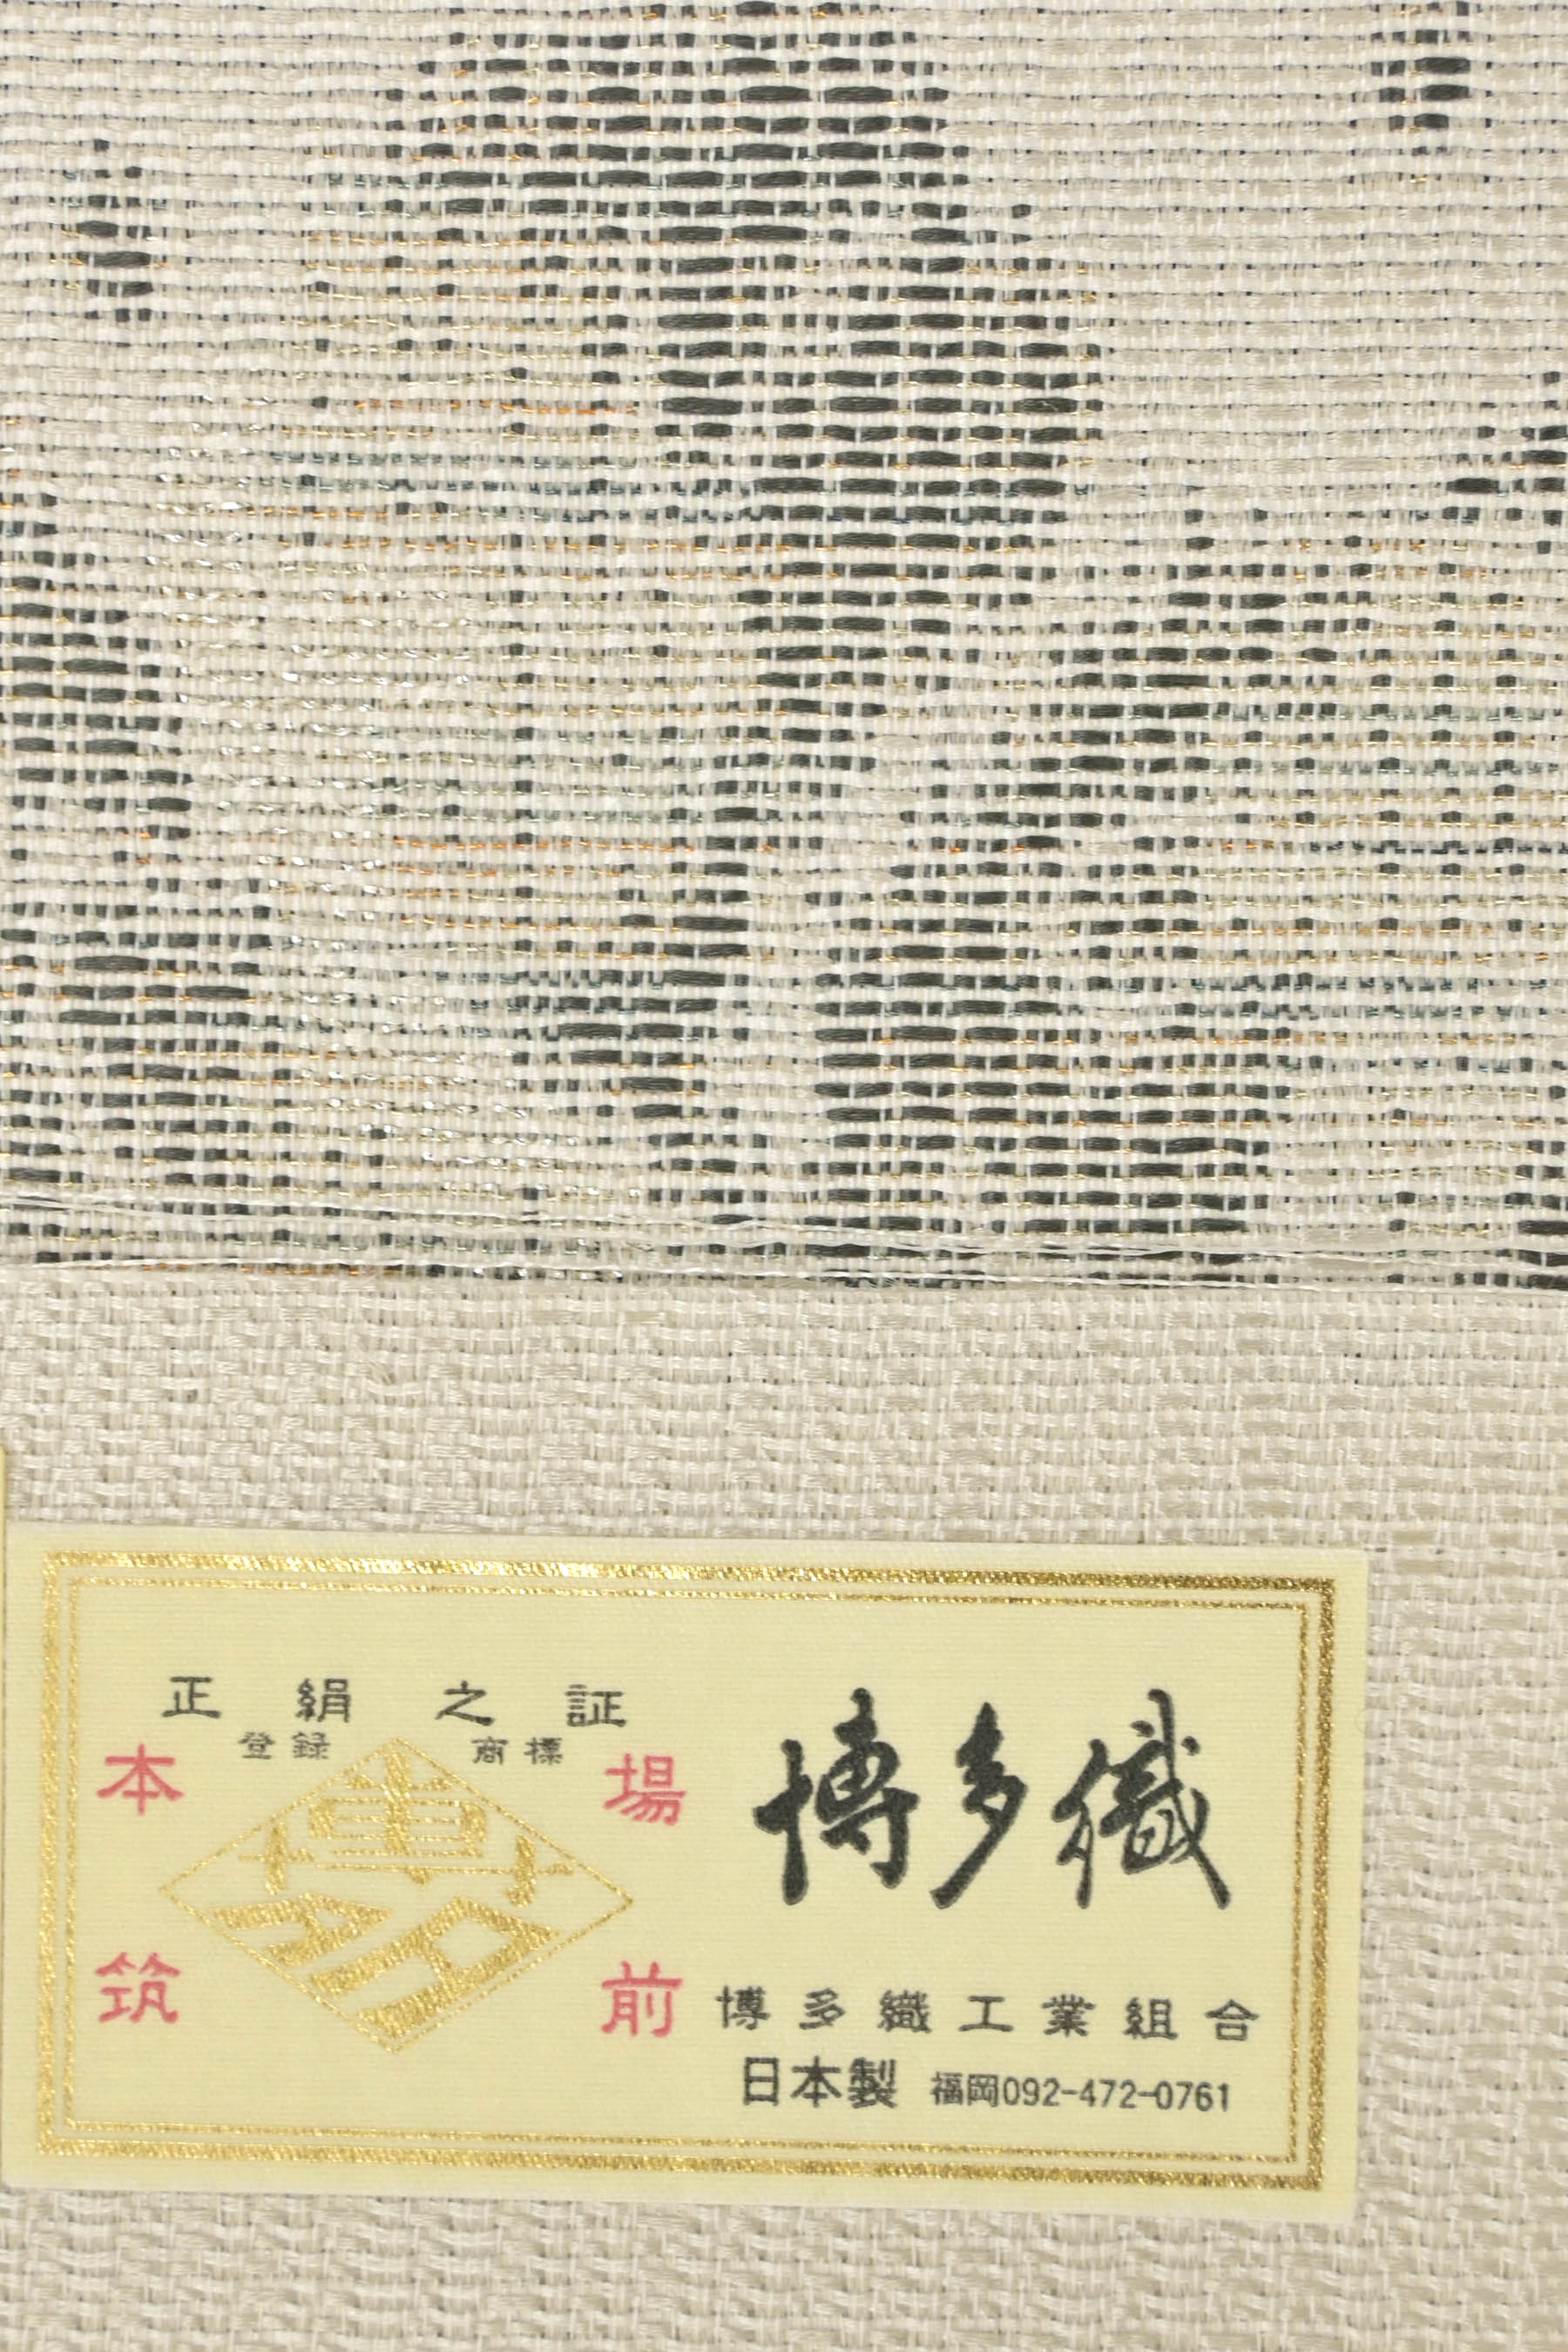 正絹之証
登録 商標
本 場
博多
筑 前
博多織
博多織工業組合
日本製 福岡092-472-0761